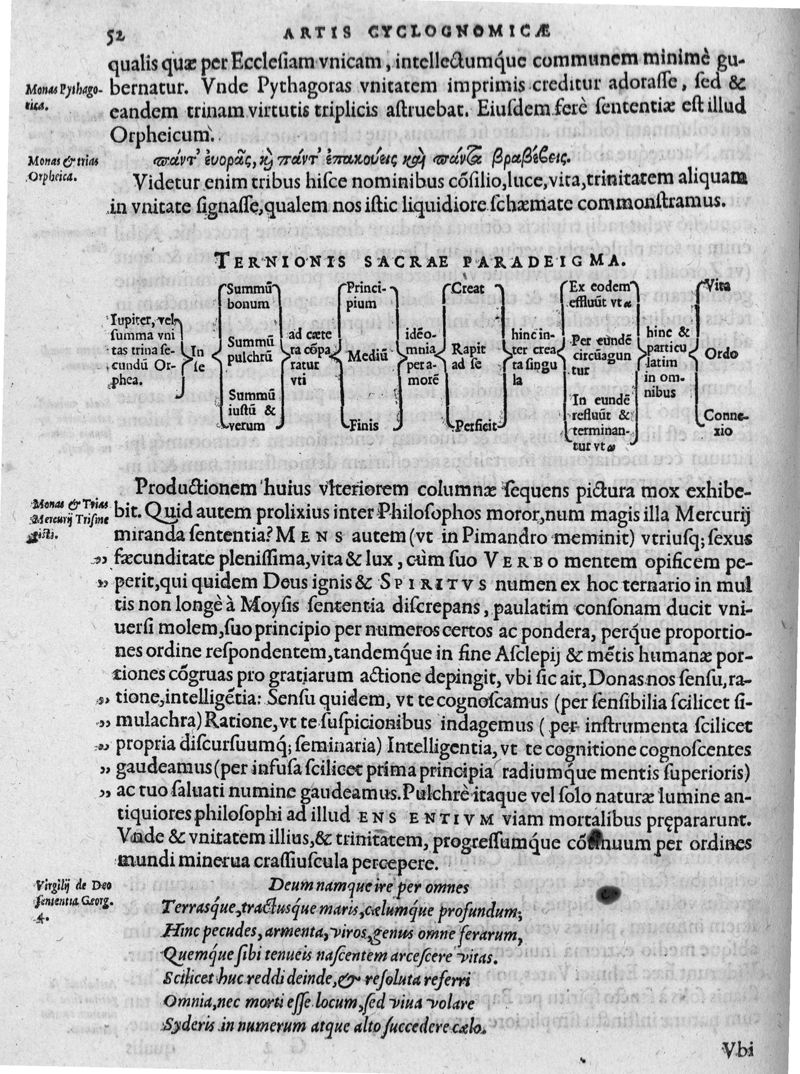 52 ARTIS CYCLOGNOMICÆ
qualis quæ per Ecclesiam vnicam, intellectumq́ue communem minimè gu-
Monas Pythago-
rica.
bernatur. Vnde Pythagoras vnitatem imprimis creditur adorasse, sed &
eandem trinam virtutis triplicis astruebat. Eiusdem ferè sententiæ est illud
Orpheicum.
Monas & trias
Orpheica.
πάντ' ἐνορᾷς, κỳ πάντ' ἐπακούεις καὶ πάντα βραβέυεις.
Videtur enim tribus hisce nominibus cõsilio, luce, vita, trinitatem aliquam
in vnitate signasse, qualem nos istic liquidiore schæmate commonstramus.
TERNIONIS SACRAE PARADEIGMA.
Iupiter, vel
summa vni
tas trina se-
cundũ Or-
phea.
In
se
Summũ
bonum
Summũ
pulchrũ
Summũ
iustũ &
verum
ad cæte
ra cõpa
ratur
vti
Princi-
pium
Mediũ
Finis
idẽo-
mnia
per a-
morẽ
Creat
Rapit
ad se
Perficit
hinc in-
ter crea
ta singu
la
Ex eodem
effluũt vt α
Per eundẽ
circũagun
tur
In eundẽ
refluũt &
terminan-
tur vt ω
hinc &
particu
latim
in om-
nibus
Vita
Ordo
Conne-
xio
Productionem huius vlteriorem columnæ sequens pictura mox exhibe-
Monas & Trias
Mercurij Trisme
gisti.
bit. Quid autem prolixius inter Philosophos moror, num magis illa Mercurij
miranda sententia? MENS autem (vt in Pimandro meminit) vtriusq; sexus
„ fæcunditate plenissima, vita & lux, cùm suo VERBO mentem opificem pe-
„ perit, qui quidem Deus ignis & SPIRITVS numen ex hoc ternario in mul
tis non longè à Moysis sententia discrepans, paulatim consonam ducit vni-
uersi molem, suo principio per numeros certos ac pondera, perq́ue proportio-
nes ordine respondentem, tandemq́ue in fine Asclepij & mẽtis humanæ por-
tiones cõgruas pro gratiarum actione depingit, vbi sic ait, Donas nos sensu, ra-
„ tione, intelligẽtia: Sensu quidem, vt te cognoscamus (per sensibilia scilicet si-
„ mulachra) Ratione, vt te suspicionibus indagemus ( per instrumenta scilicet
„ propria discursuumq́; seminaria) Intelligentia, vt te cognitione cognoscentes
„ gaudeamus (per infusa scilicet prima principia radiumq́ue mentis superioris)
„ ac tuo saluati numine gaudeamus. Pulchrè itaque vel solo naturæ lumine an-
tiquiores philosophi ad illud ENS ENTIVM viam mortalibus prępararunt.
Vnde & vnitatem illius, & trinitatem, progressumq́ue cõtinuum per ordines
mundi minerua crassiuscula percepere.
Virgilij de Deo
sententia Georg.
4.
Deum namque ire per omnes
Terrasq́ue, tractusque maris, cælumque profundum;
Hinc pecudes, armenta, viros, genus omne ferarum,
Quemque sibi tenueis nascentem arcescere vitas.
Scilicet huc reddi deinde, & resoluta referri
Omnia, nec morti esse locum, sed viua volare
Syderis in numerum atque alto succedere cælo.
Vbi